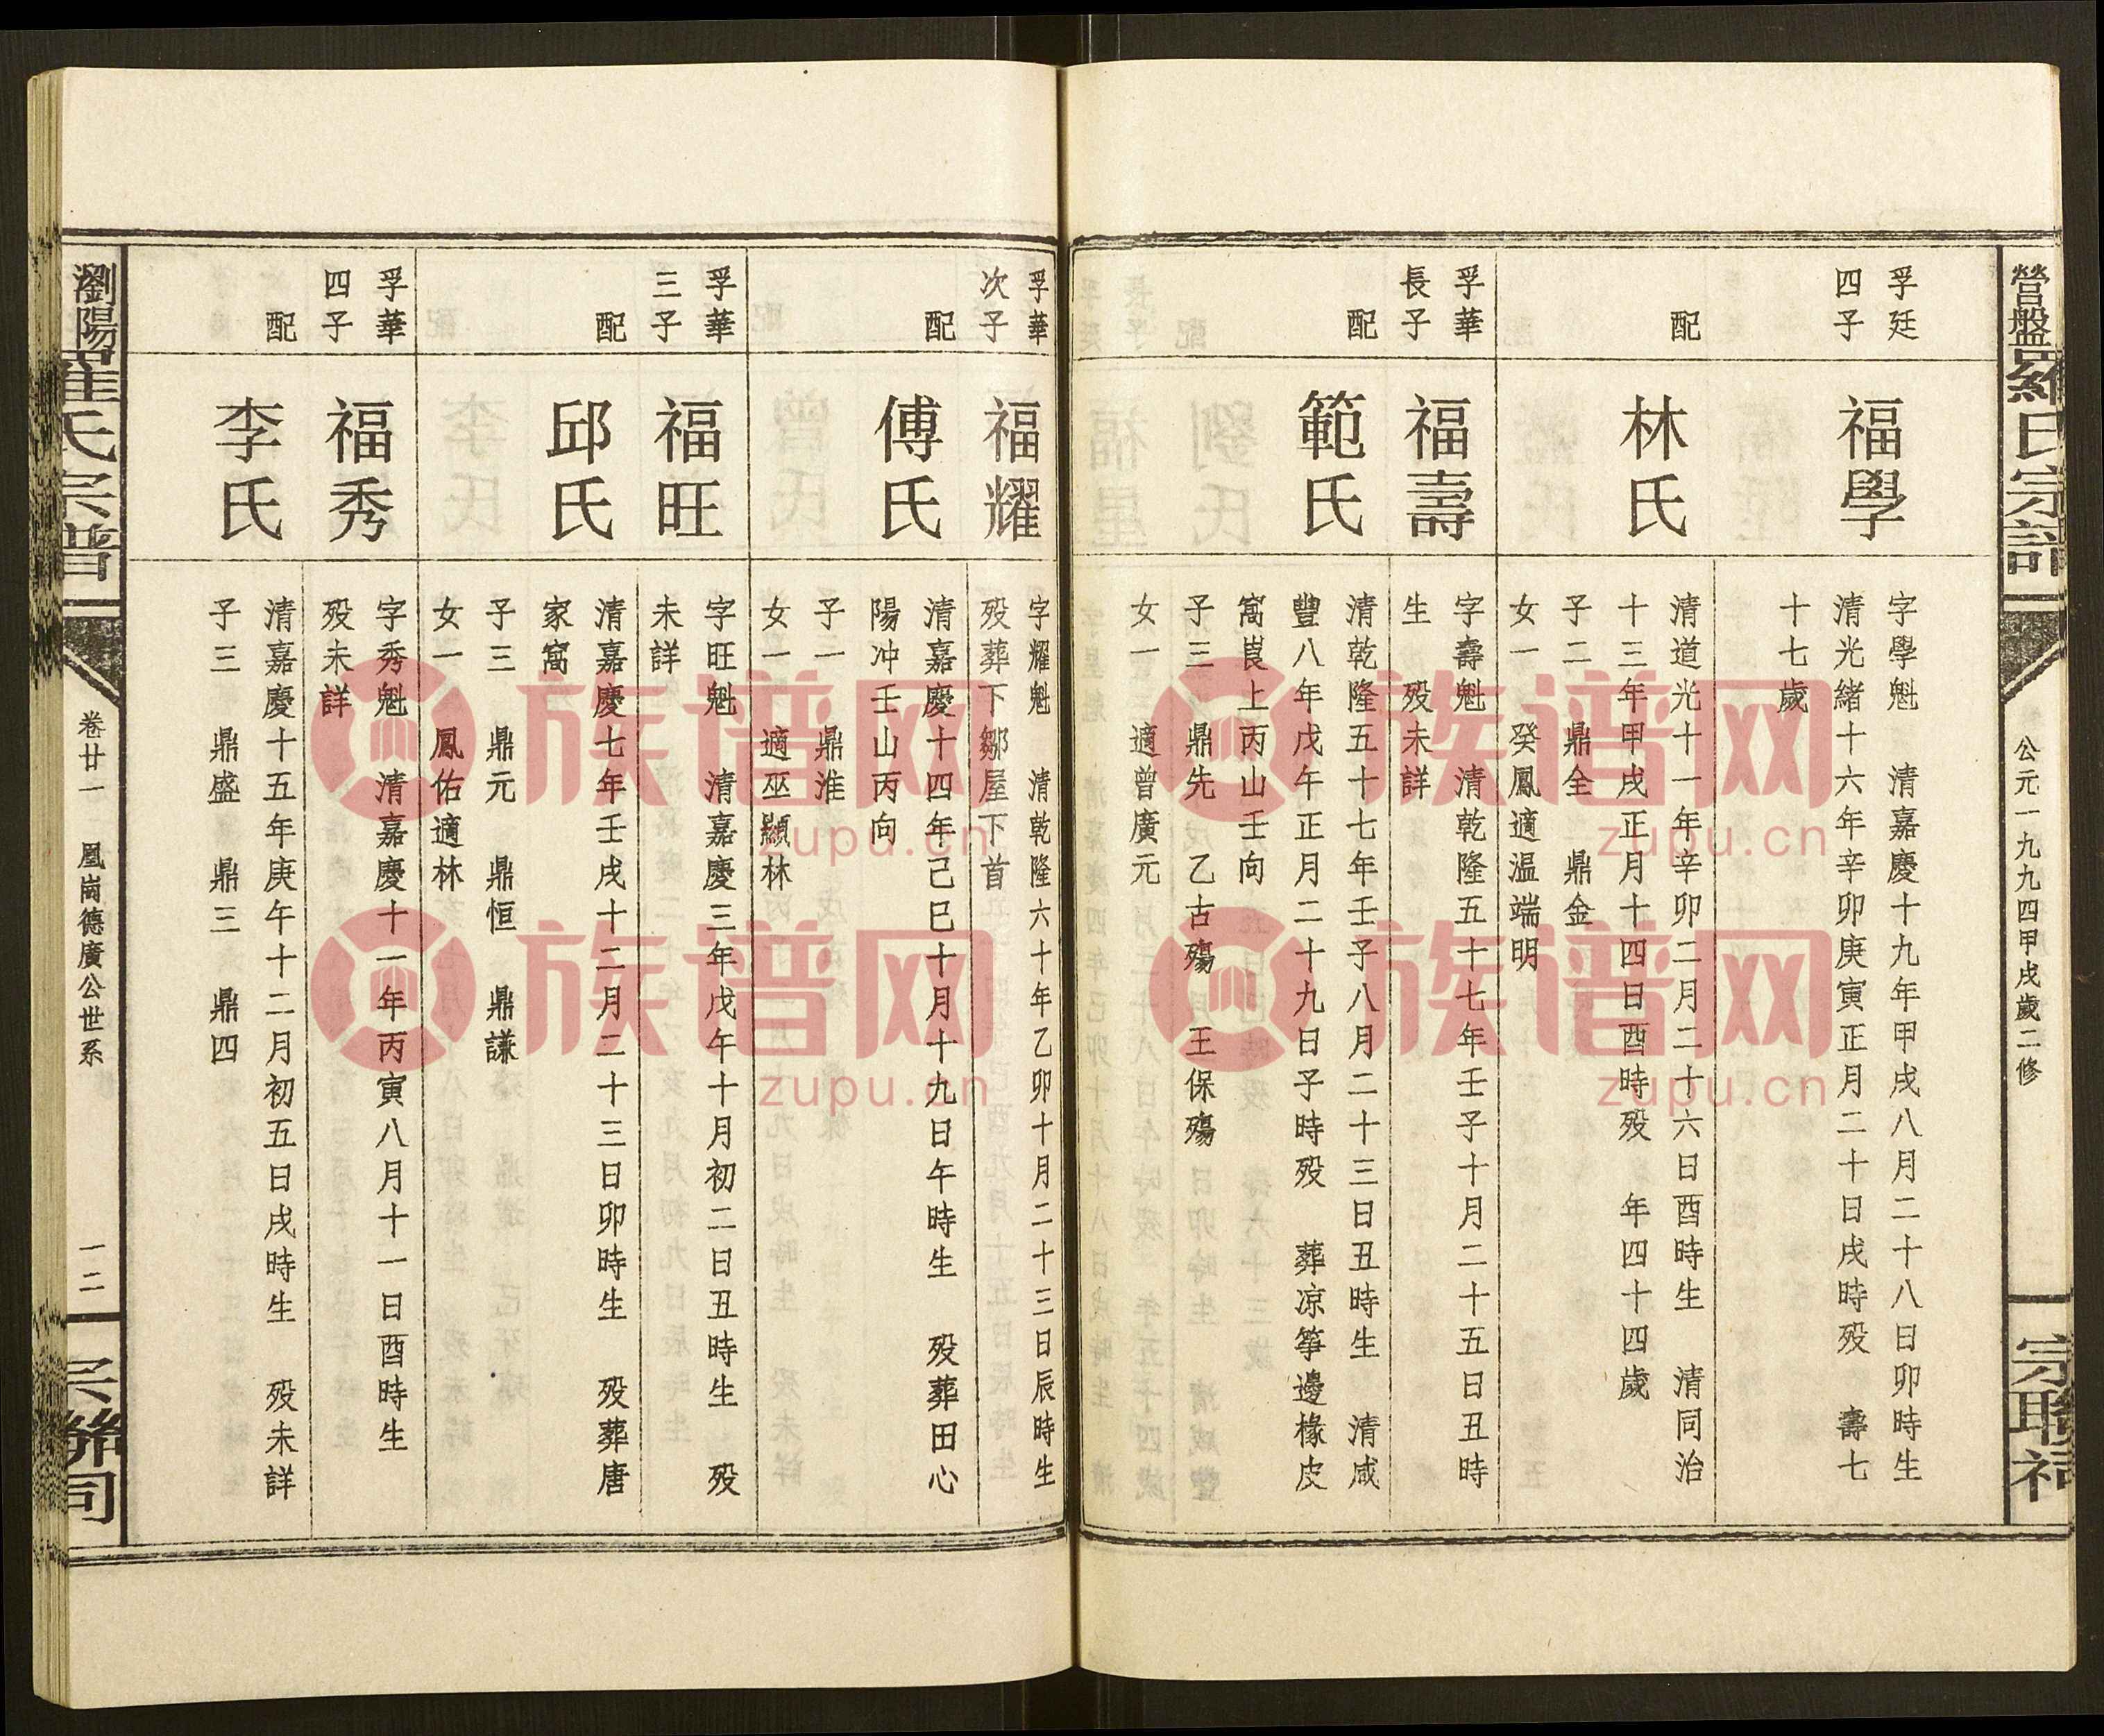 營盤羅氏宗譜
公元一九九四甲戌歲二修
宗聯祠
孚廷
四子
福學
字學魁　清嘉慶十九年甲戌八月二十八日卯時生
清光緒十六年辛卯庚寅正月二十日戌時歿　壽七
十七歲
配
林氏
清道光十一年辛卯二月二十六日酉時生　清同治
十三年甲戌正月十四日酉時歿　年四十四歲
子二　鼎全　鼎金
女一　癸鳳適温端明
孚華
長子
福壽
字壽魁　清乾隆五十七年壬子十月二十五日丑時
生　歿未詳
配
範氏
清乾隆五十七年壬子八月二十三日丑時生　清咸
豐八年戊午正月二十九日子時歿　葬凉箏邊椽皮
窩崀上丙山壬向
子三　鼎先　乙古殤　王保殤
女一　適曾廣元
孚華
次子
福耀
字耀魁　清乾隆六十年乙卯十月二十三日辰時生
歿葬下鄒屋下首
配
傅氏
清嘉慶十四年己巳十月十九日午時生　歿葬田心
陽冲壬山丙向
子一　鼎淮
女一　適巫顯林
孚華
三子
福旺
字旺魁　清嘉慶三年戊午十月初二日丑時生　歿
未詳
配
邱氏
清嘉慶七年壬戌十二月二十三日卯時生　歿葬唐
家窩
子三　鼎元　鼎恒　鼎謙
女一　鳳佑適林
孚華
四子
福秀
字秀魁　清嘉慶十一年丙寅八月十一日酉時生
歿未詳
配
李氏
清嘉慶十五年庚午十二月初五日戌時生　歿未詳
子三　鼎盛　鼎三　鼎四
瀏陽羅氏宗譜
卷廿一　凰崗德廣公世系
一二
宗聯祠
族谱网
zupu.cn
族谱网
zupu.cn
族谱网
zupu.cn
族谱网
zupu.cn